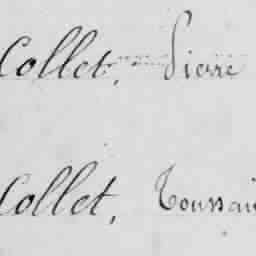 Collet, Pierre
Collet, Toussai